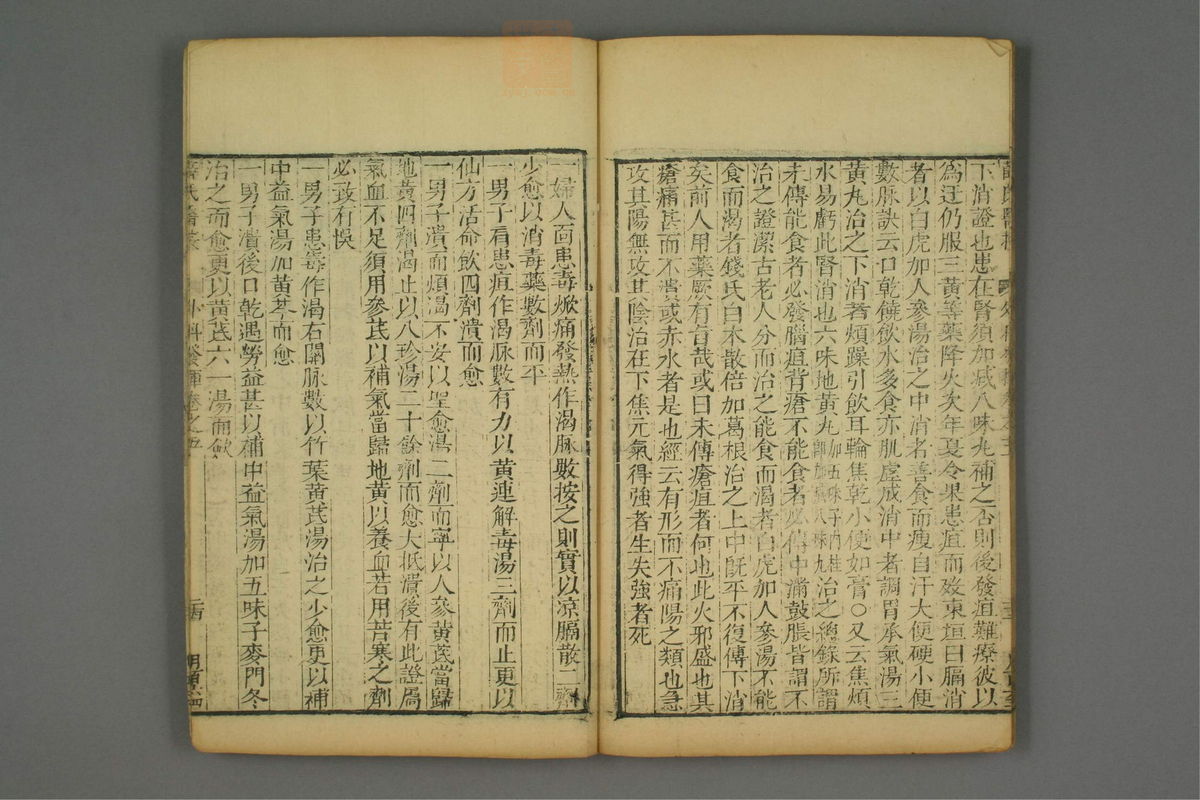 下消證也患在腎須加減八味丸補之否則後發疽難療彼以
爲迂仍服三黃等藥降火次年夏令果患疽而歿東垣曰膈消
者以白虎加人參湯治之中消者善食而瘦自汗大便硬小便
數脉訣云口乾饒飲水多食亦肌虛成消中者調胃承氣湯三
黃丸治之下消者煩躁引飲耳輪焦乾小便如膏○又云焦煩
水易虧此腎消也六味地黃丸治之總錄所謂
末傳能食者必發腦疽背瘡不能食者必傳中滿鼓脹皆謂不
治之證潔古老人分而治之能食而渴者白虎加人參湯不能
食而渴者錢氏白朮散倍加葛根治之上中旣平不復傳下消
矣前人用藥厥有旨哉或曰未傳瘡疽者何也此火邪盛也其
瘡痛甚而不潰或赤水者是也經云有形而不痛陽之類也急
攻其陽無攻其陰治在下焦元氣得強者生失強者死
一婦人面患毒焮痛發熱作渴脉數按之則實以凉膈散二劑
少愈以消毒藥數劑而平
一男子肩患疽作渴脉數有力以黃連解毒湯三劑而止更以
仙方活命飲四劑潰而愈
一男子潰而煩渴不安以聖愈湯二劑而寧以人參黃芪當歸
地黃四劑渴止以八珍湯二十餘劑而愈大抵潰後有此證屬
氣血不足須用參芪以補氣當歸地黃以養血若用苦寒之劑
必致有悞
一男子患毒作渴右關脉數以竹葉黃芪湯治之少愈更以補
中益氣湯加黃芩而愈
一男子潰後口乾遇勞益甚以補中益氣湯加五味子麥門冬
治之而愈更以黃芪六一湯而愈
薛氏醫案 外科發揮卷之五